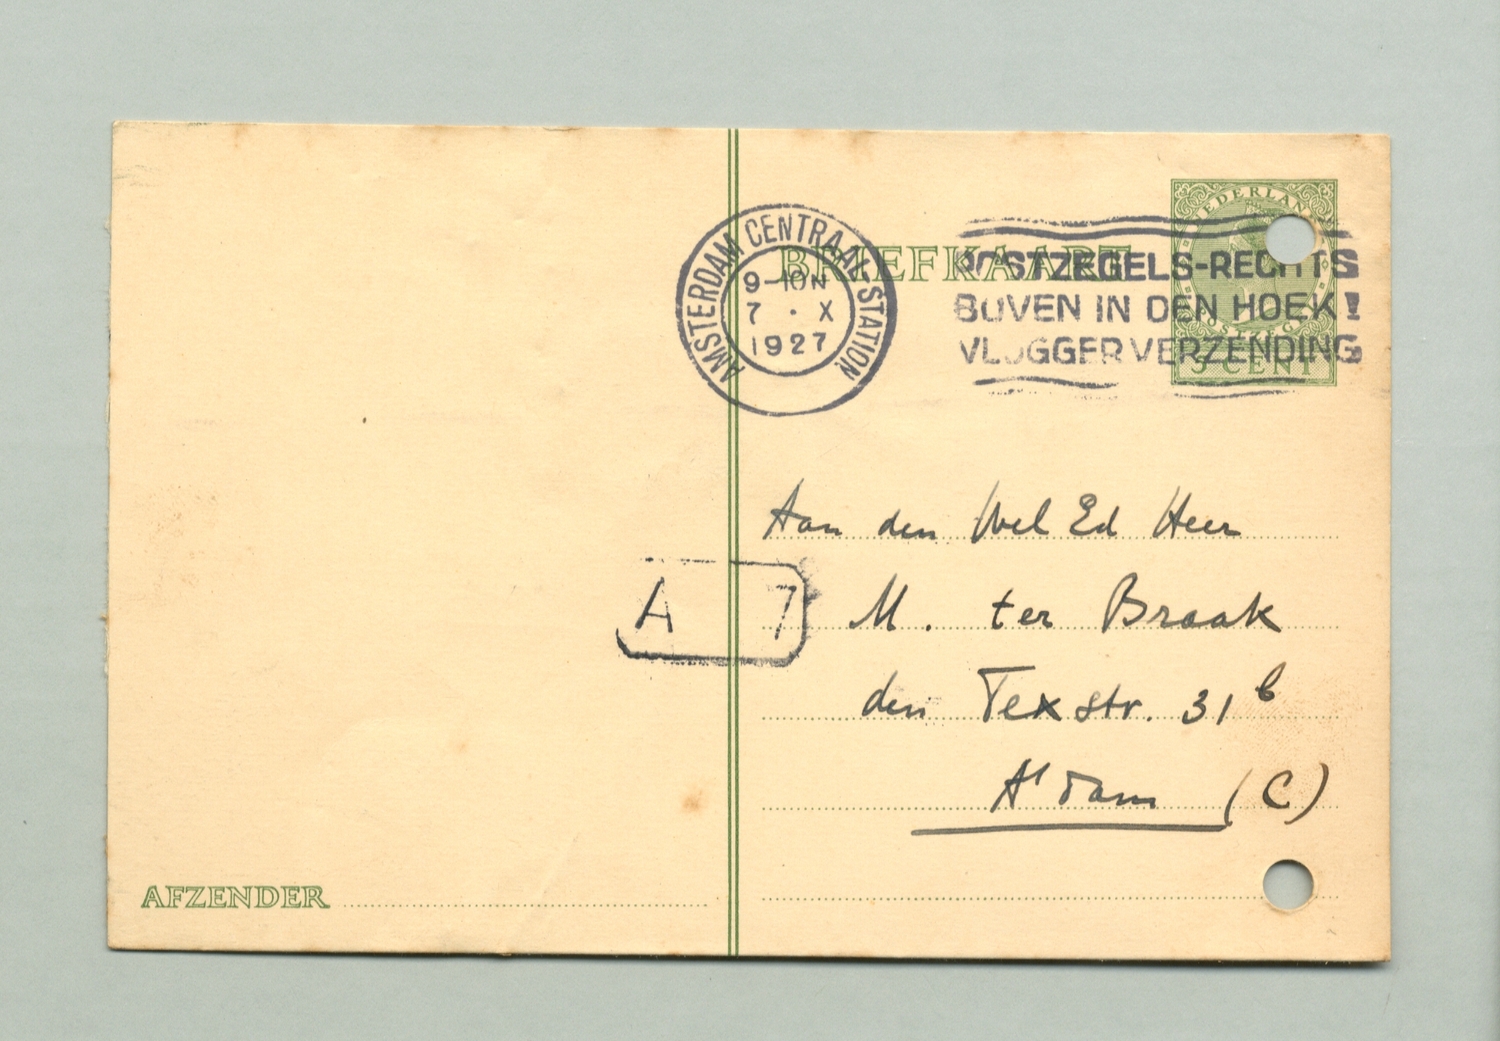 NEDERLAND
POSTZEGEL
3 CENT
BRIEFKAART
AMSTERDAM CENTRAAL STATION
9-10N
7 · X
1927
POSTZEGELS-RECHTS
BOVEN IN DEN HOEK!
VLUGGER VERZENDING
Aan den Wel Ed Heer
M. ter Braak
den Texstr. 31 b
A'dam (C)
A 7
AFZENDER